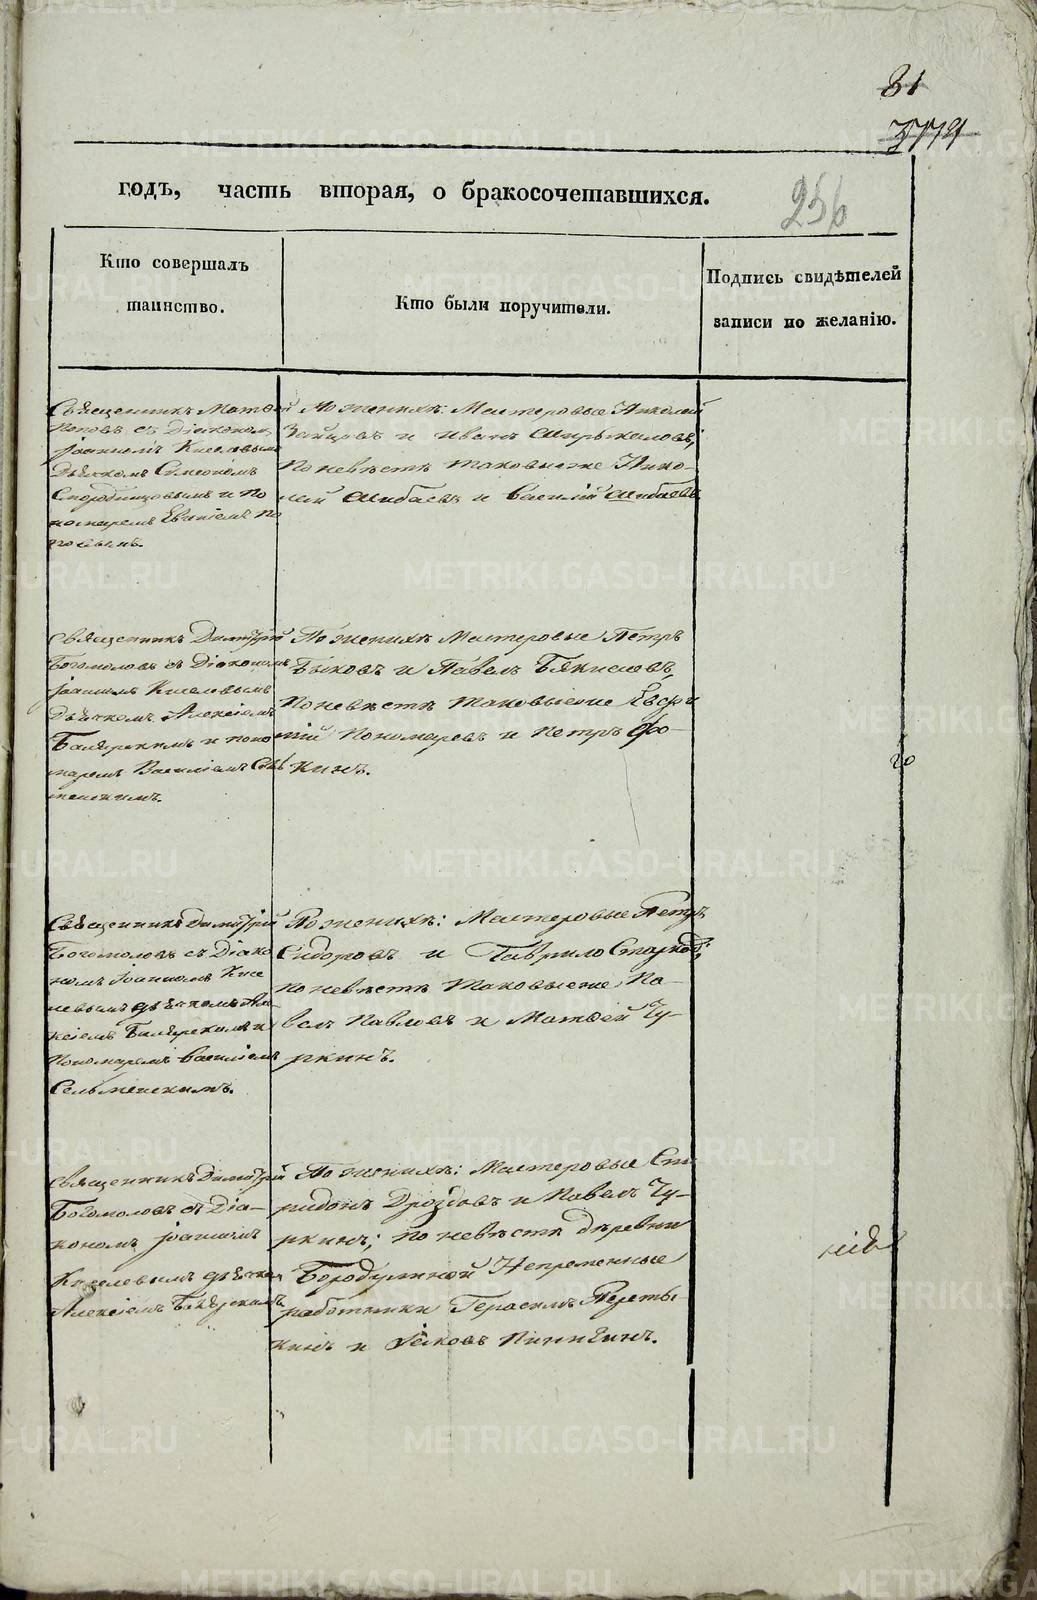 81
годъ, часть вторая, о бракосочетавшихся.
256
Кто совершалъ
таинство.
Кто были поручители.
Подпись свидѣтелей
записи по желанію.
Священникъ Матвей
Поповъ съ Діакономъ
Іоанномъ Киселевымъ
Дьячкомъ Симеономъ
и По
номаремъ Евгеніемъ По
повымъ.
По женихѣ: Мастеровые Николай
Зайцовъ и Иванъ
По невѣстѣ таковые же Нико-
лай Шибаевъ и Василій Шибаевъ
Священникъ Димитрій
Богомоловъ съ Діакономъ
Іоанномъ Киселевымъ
Дьячкомъ Алексіемъ
и поно
маремъ Василіемъ Сель
менскимъ.
По женихѣ Мастеровые Петръ
Быковъ и Павелъ
По невѣстѣ таковые же
Пономаревъ и Петръ Фо-
кинъ.
Священникъ Димитрій
Богомоловъ съ Діако
номъ Іоанномъ Кисе
левымъ дьячкомъ Але
ксіемъ и
Пономаремъ Василіемъ
Сельменскимъ.
По женихѣ: Мастеровые Петръ
Сидоровъ и Гаврило
по невѣстѣ таковые же, Па-
велъ Павловъ и Матвей Чу-
ркинъ.
Священникъ Димитрій
Богомоловъ съ Діа-
кономъ Іоанномъ
Киселевымъ дьячкомъ
Алексіемъ
По женихѣ: Мастеровые Спи
ридонъ Дроздовъ и Павелъ Чу-
ркинъ; по невѣстѣ деревни
Бородулиной Непременные
работники Герасимъ Переты-
кинъ и Яковъ Пинигинъ.
METRIKI.GASO-URAL.RU